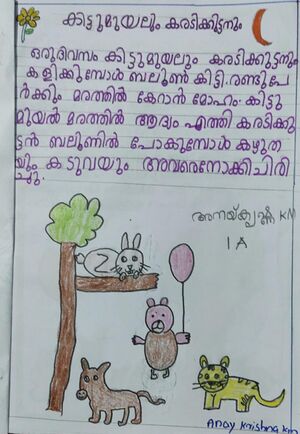 കിട്ടുമുയലും കരടിക്കിട്ടനും
ഒരുദിവസം കിട്ടുമുയലും കരടിക്കിട്ടനും
കളിക്കുമ്പോൾ ബലൂൺ കിട്ടി. രണ്ടുപേ
ർക്കും മരത്തിൽ കേറാൻ മോഹം. കിട്ടു
മുയൽ മരത്തിൽ ആദ്യം എത്തി കരടിക്കു
ട്ടൻ ബലൂണിൽ പോകുമ്പോൾ കഴുത
യും കടുവയും അവരെനോക്കിചിരി
ച്ചു.
അനയ്കൃഷ്ണ KM
1 A
Anay Krishna KM